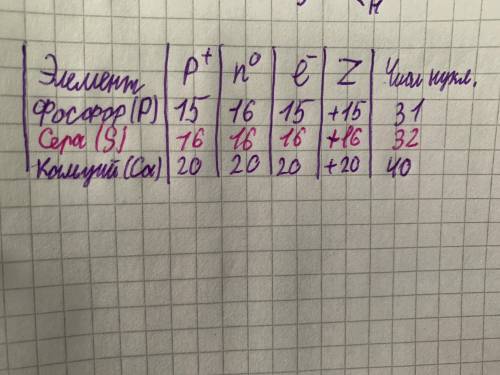 Элемент | p⁺ | n⁰ | e⁻ | Z | Число нукл.
Фосфор (P) | 15 | 16 | 15 | +15 | 31
Сера (S) | 16 | 16 | 16 | +16 | 32
Кальций (Ca) | 20 | 20 | 20 | +20 | 40